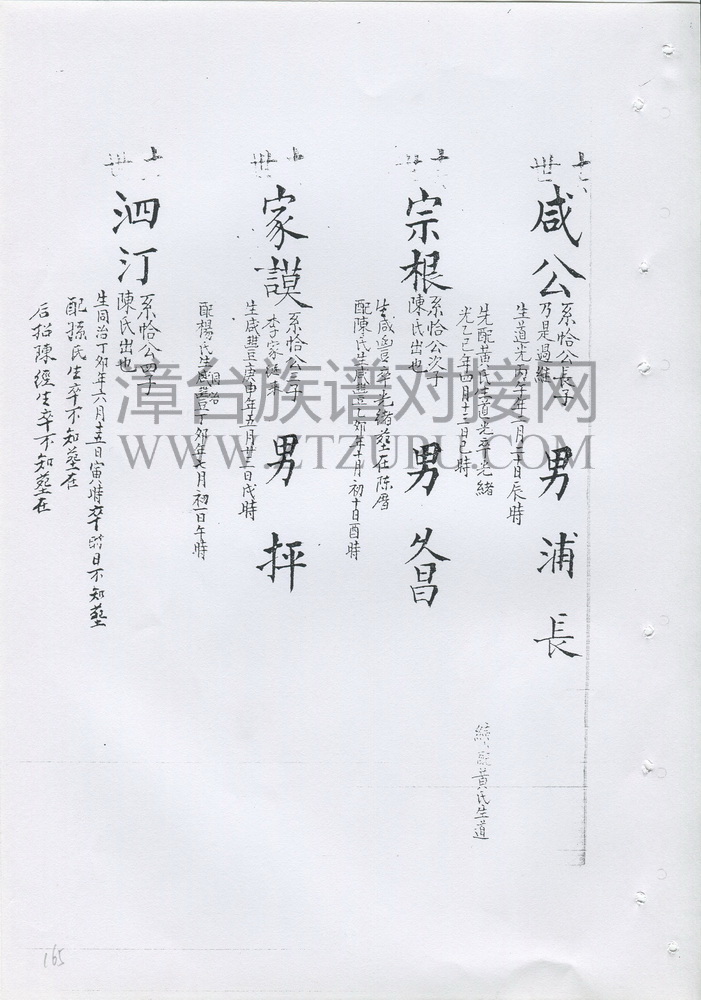 咸公
系恰公長子
乃是過繼
生道光丙午年二月二十日辰時
先配黄氏生道光卒光緒
光乙巳年四月十二日巳時
男浦長
續配黄氏生道
宗根
系恰公次子
陳氏出也
生咸豊卒光緒塟在陈厝
配陳氏生咸豊乙卯年十月初十日酉時
男久昌
家謨
系恰公三子
李家過来
生咸豐庚申年五月廿三日戌時
配楊氏生咸豐丁卯年七月初一日午時
同治
男抨
泗汀
系恰公四子
陳氏出也
生同治丁卯年六月十五日寅時卒昔日不知塟
配孫氏生卒不知塟在
后招陳經生卒不知塟在
165
漳台族谱对接网
WWW.ZTZUPU.COM